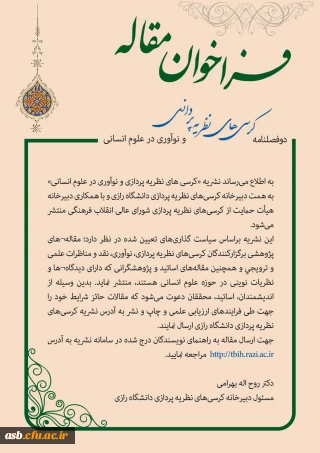 فراخوان مقاله
کرسی‌های نظریه پردازی
دوفصلنامه
و نوآوری در علوم انسانی
به اطلاع می‌رساند نشریه «کرسی های نظریه پردازی و نوآوری در علوم انسانی»
به همت دبیرخانه کرسی‌های نظریه پردازی دانشگاه رازی و با همکاری دبیرخانه
هیأت حمایت از کرسی‌های نظریه پردازی شورای عالی انقلاب فرهنگی منتشر
می‌شود.
این نشریه براساس سیاست گذاری‌های تعیین شده در نظر دارد؛ مقاله¬های
پژوهشی برگزارکنندگان کرسی‌های نظریه پردازی، نوآوری، نقد و مناظرات علمی
و ترویجی و همچنین مقاله‌های اساتید و پژوهشگرانی که دارای دیدگاه¬ها و
نظریات نوینی در حوزه علوم انسانی هستند، منتشر نماید. بدین وسیله از
اندیشمندان، اساتید، محققان دعوت می‌شود که مقالات حائز شرایط خود را
جهت طی فرایندهای ارزیابی علمی و چاپ و نشر به آدرس نشریه کرسی‌های
نظریه پردازی دانشگاه رازی ارسال نمایند.
جهت ارسال مقاله به راهنمای نویسندگان درج شده در سامانه نشریه به آدرس
http://tbih.razi.ac.ir مراجعه نمایید.
دکتر روح اله بهرامی
مسئول دبیرخانه کرسی‌های نظریه پردازی دانشگاه رازی
asb.cfu.ac.ir